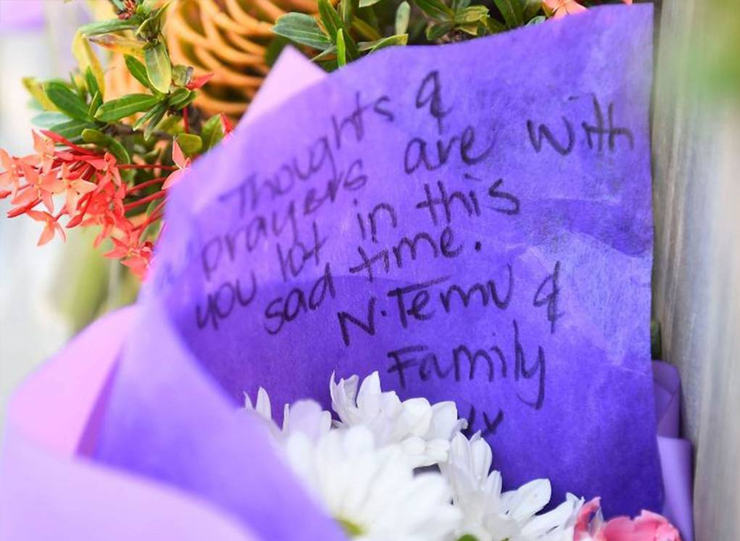 Thoughts &
prayers are with
you lot in this
sad time.
N. Temu &
Family